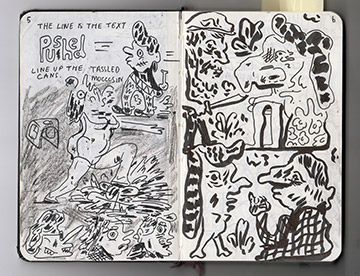 5
THE LINE IS THE TEXT
LINE UP THE TASSLED
CANS. MOCCASIN
6